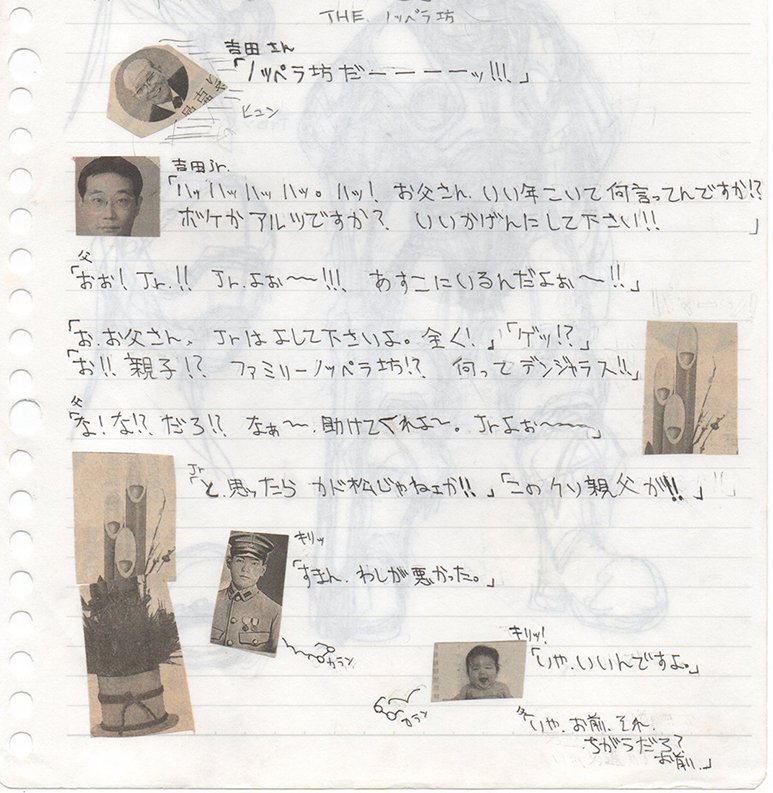 THE ノッペラ坊
吉田さん
「ノッペラ坊だーーーーッ!!!」
ヒュン
吉田Jr.
「ハッハッハッハッ。ハッ! お父さん、いい年こいて何言ってんですか!?
ボケかアルツですか? いいかげんにして下さい!!」
父
「おお! Jr.!! Jr.よぉ〜〜!!! あすこにいるんだよぉ〜!!」
「お、お父さん、Jrはよして下さいよ。全く!」「ゲッ!?
「お!! 親子!? ファミリーノッペラ坊!? 何ってデンジャラス!!」
父
「な! な!? だろ!? なぁ〜、助けてくれよ〜。Jrよぉ〜〜〜」
Jr
「と、思ったら カド松じゃねェか!!」「このクソ親父が!!」
キリッ
「すまん、わしが悪かった。」
カラン
キリッ!
「いや、いいんですよ。」
カラン
父
「いや、お前、それ、
ちがうだろ?
お前。」